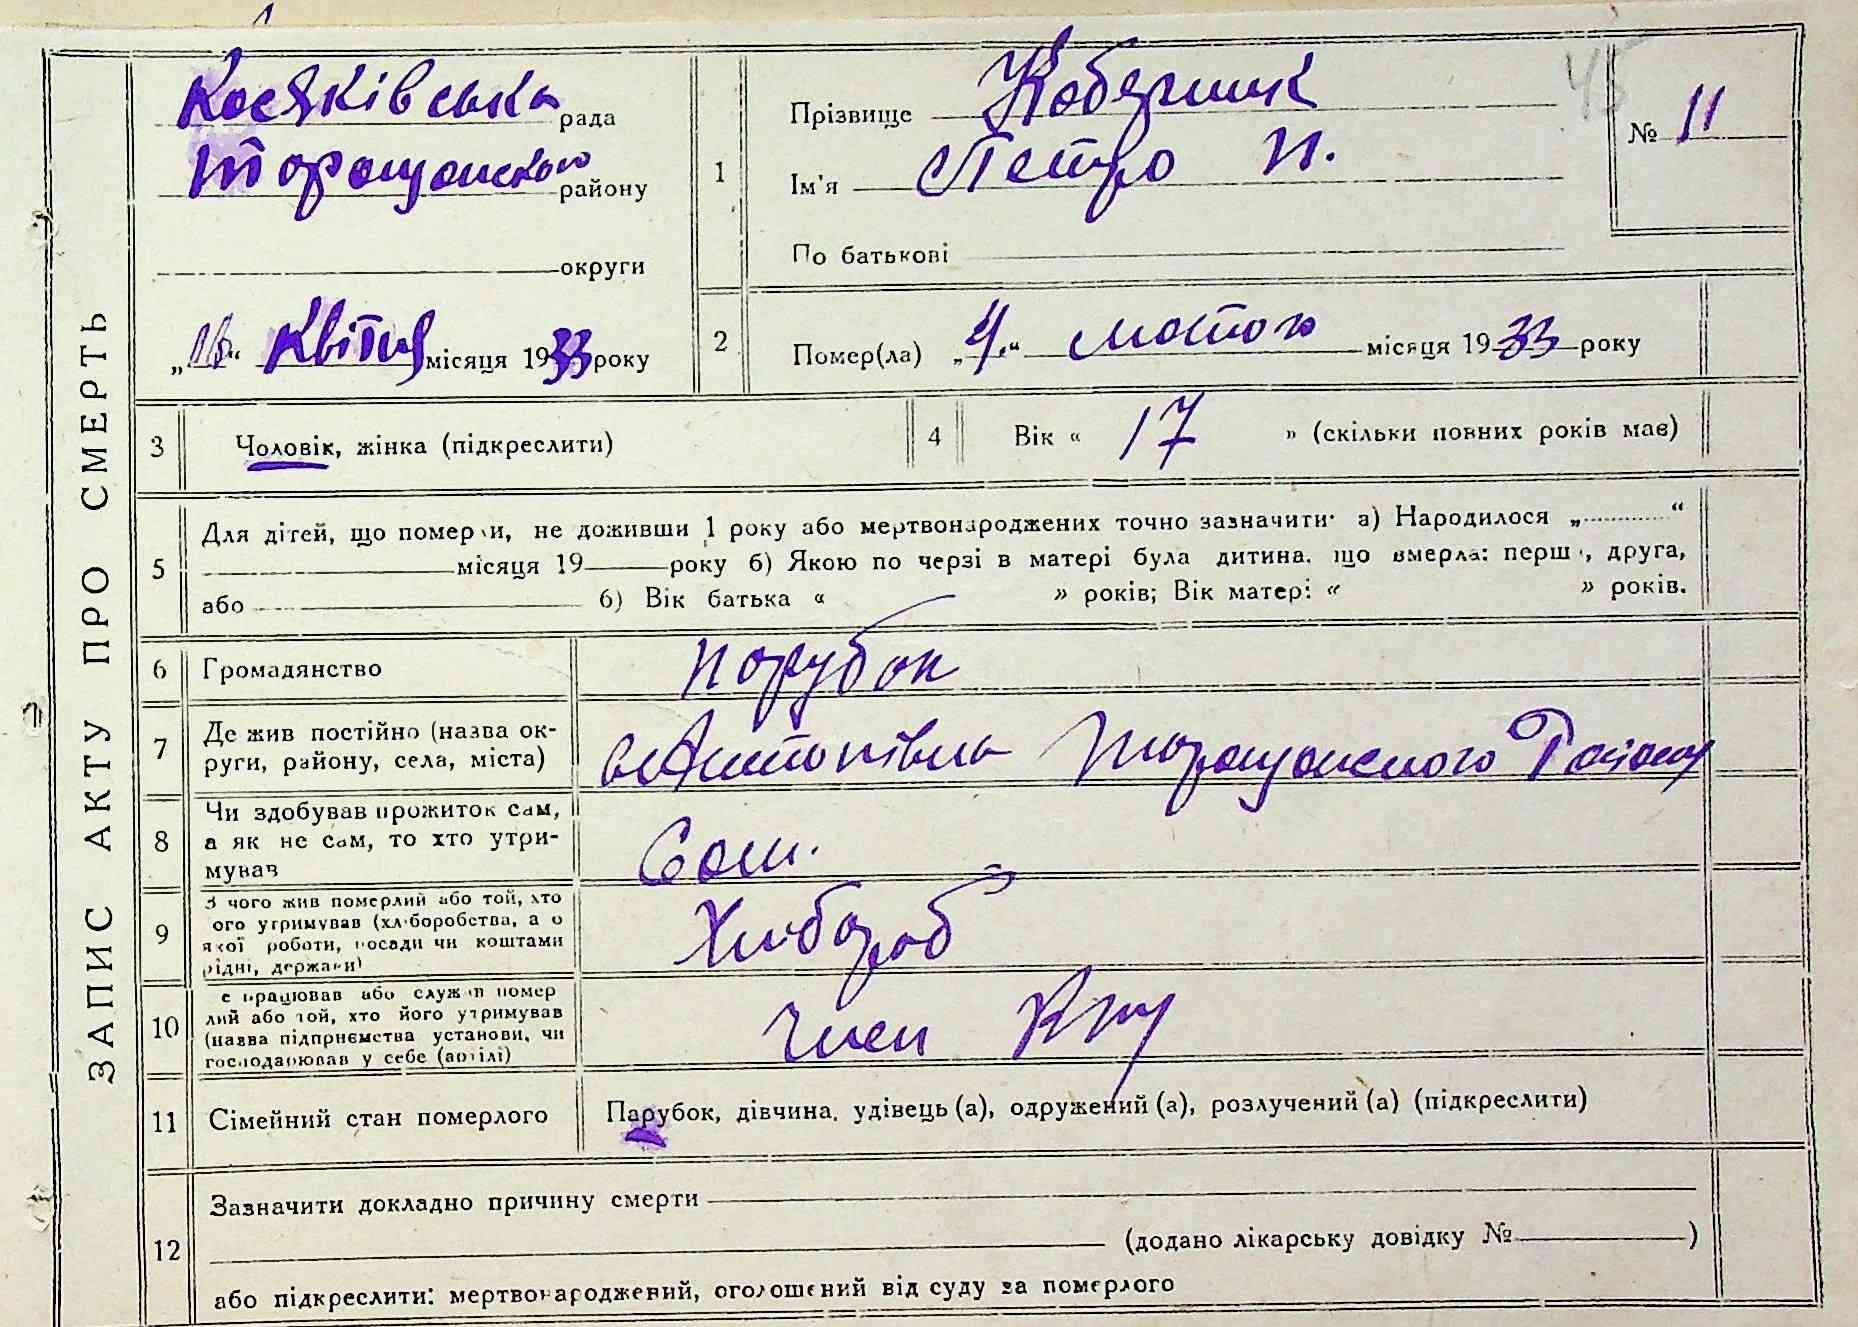 ЗАПИС АКТУ ПРО СМЕРТЬ
Косяківська рада
Таращанського району
округи
„16“ Квітня місяця 1933 року
1
Прізвище Коберник
Ім'я Петро П.
По батькові
№ 11
45
2
Помер(ла) „4.“ лютого місяця 1933 року
3 Чоловік, жінка (підкреслити)
4 Вік « 17 » (скільки повних років має)
5 Для дітей, що померли, не доживши 1 року або мертвонароджених точно зазначити· а) Народилося „ “
місяця 19 року б) Якою по черзі в матері була дитина, що вмерла: перша, друга,
або б) Вік батька « » років; Вік матері: « » років.
6 Громадянство парубок
7 Де жив постійно (назва ок-
руги, району, села, міста)
Таращанського Району
8 Чи здобував прожиток сам,
а як не сам, то хто утри-
мував
Сам.
9 З чого жив померлий або той, хто
його утримував (хліборобства, а о
якої роботи, посади чи коштами
рідні, держави)
Хлібороб
10 Де працював або служив помер
лий або той, хто його утримував
(назва підприємства установи, чи
господарював у себе (артілі)
член
11 Сімейний стан померлого Парубок, дівчина, удівець (а), одружений (а), розлучений (а) (підкреслити)
12 Зазначити докладно причину смерти
(додано лікарську довідку № )
або підкреслити: мертвонароджений, оголошений від суду за померлого